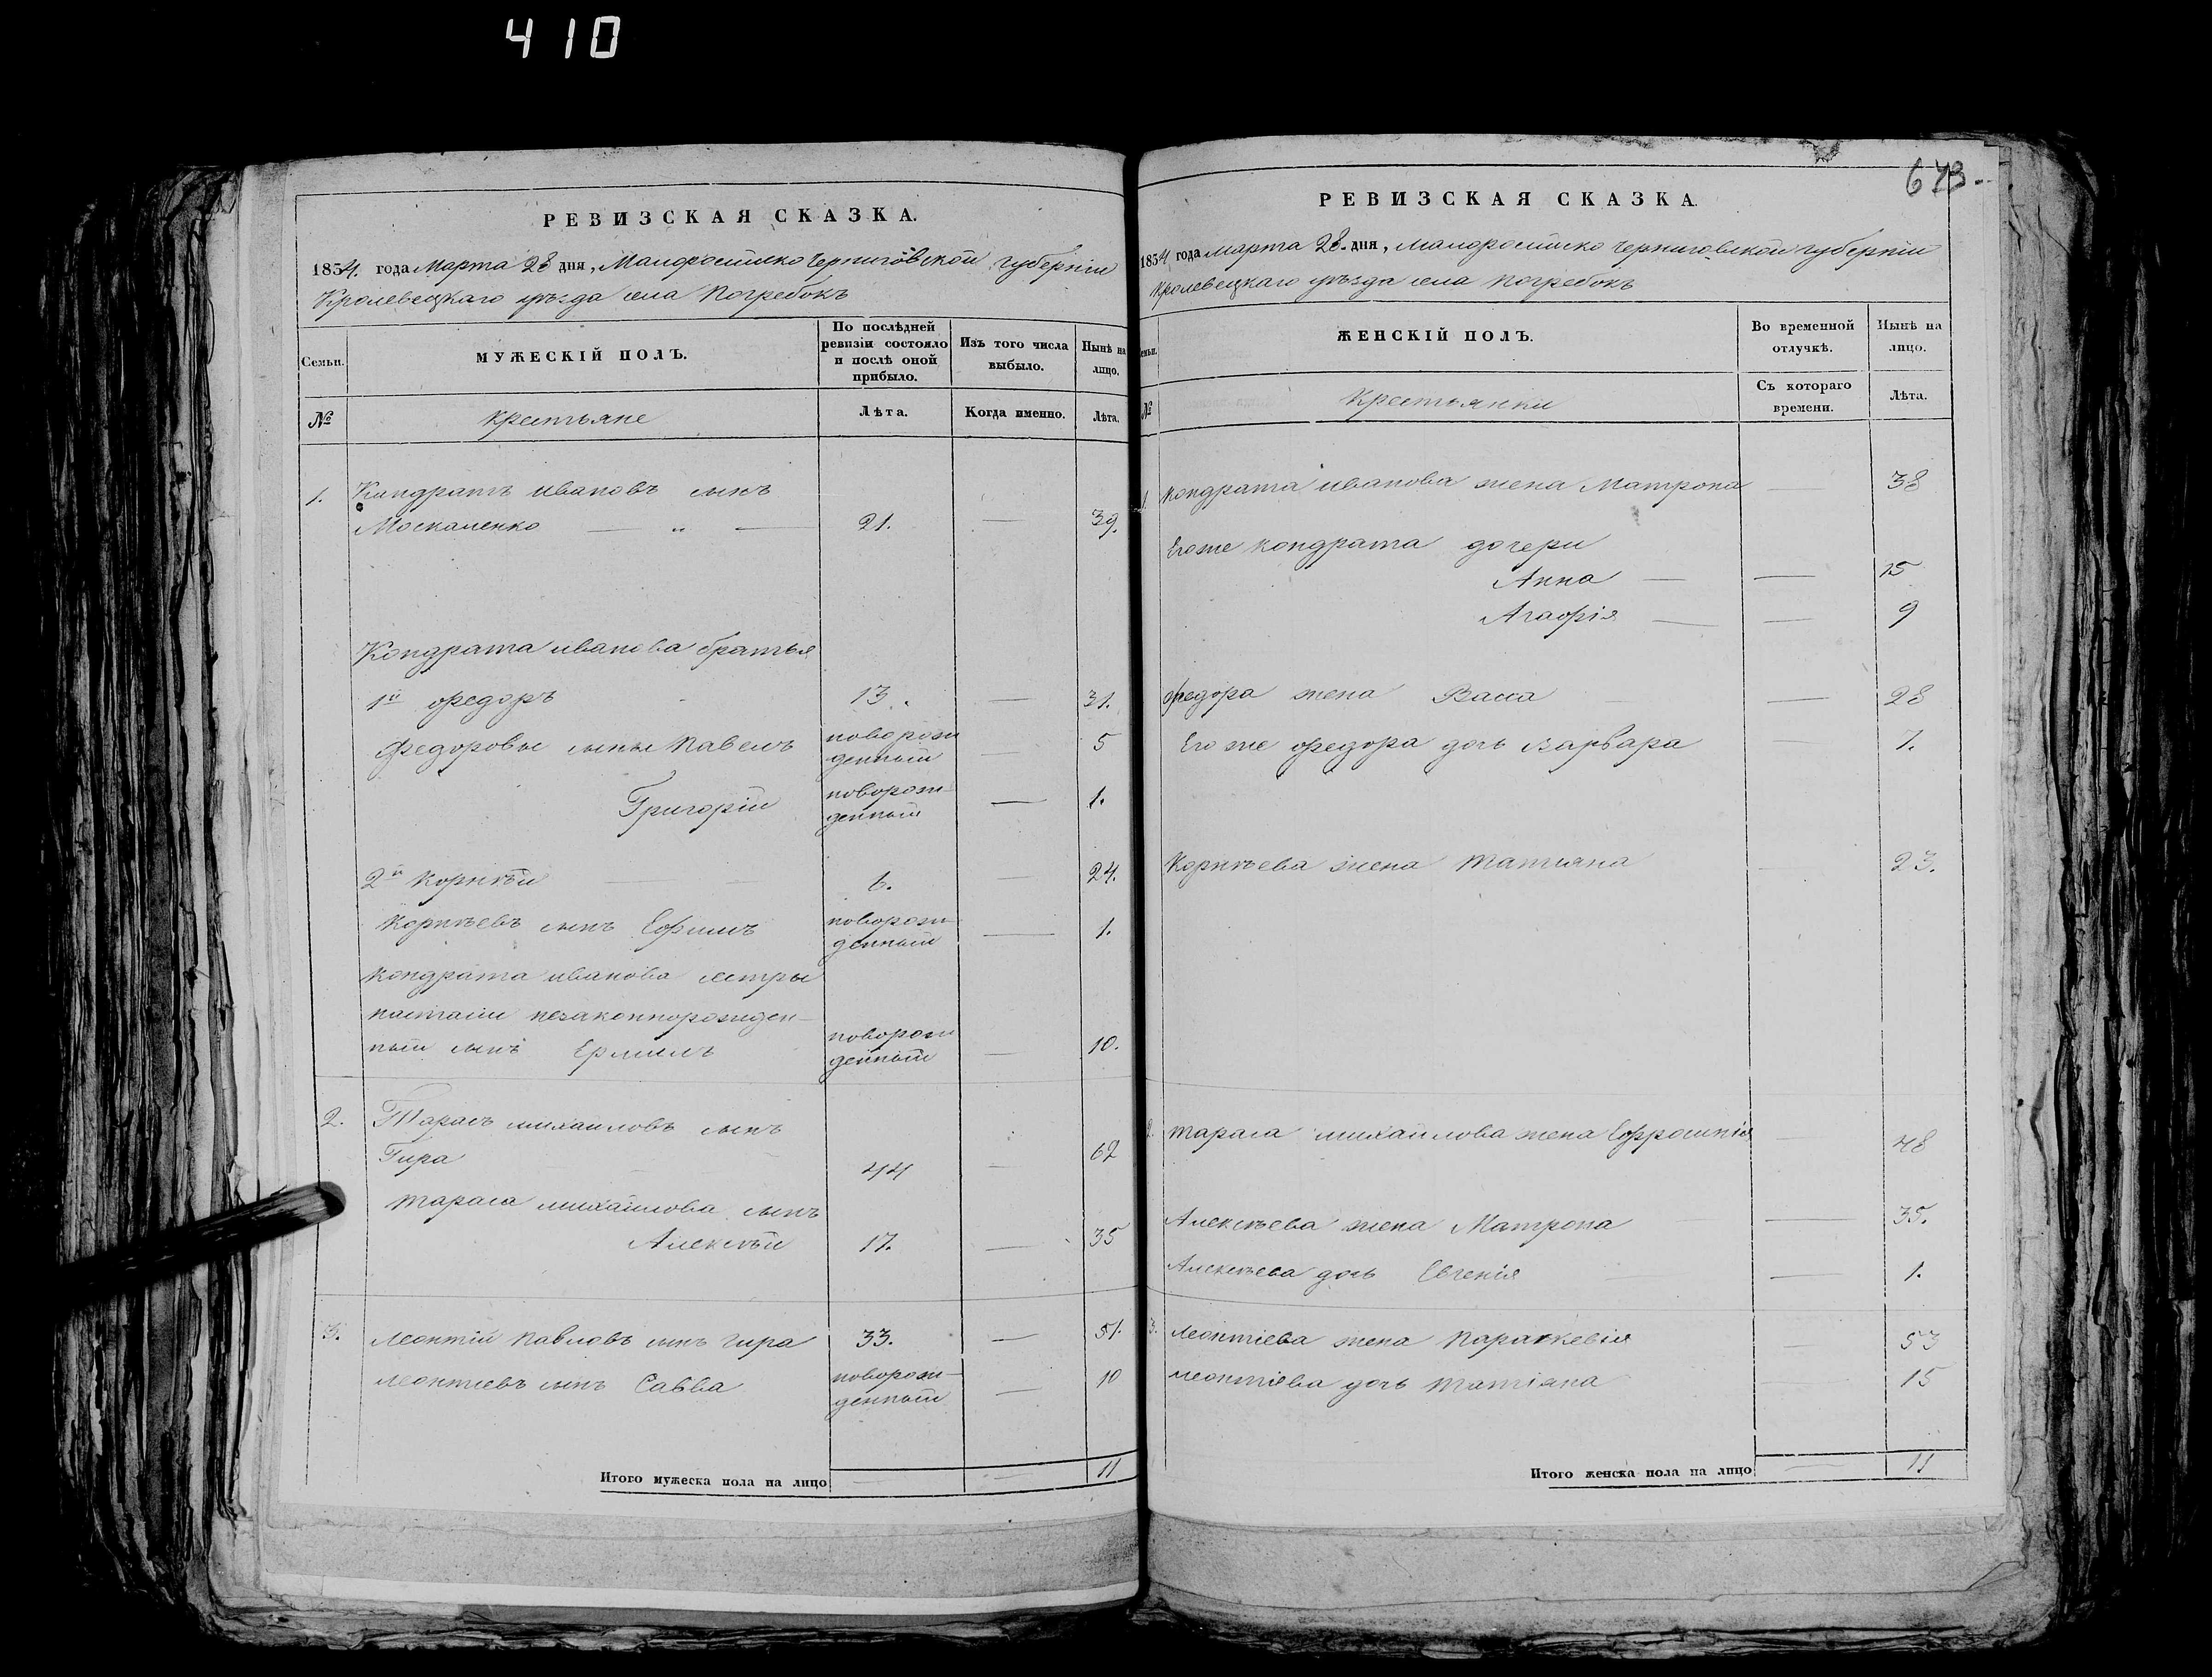 410
673.
РЕВИЗСКАЯ СКАЗКА.
1854. года Марта 28 дня, Малороссійско Черниговской губерніи
Кролевецкаго уѣзда села Погребокъ
Семьи.
МУЖЕСКІЙ ПОЛЪ.
По послѣдней
ревизіи состояло
и послѣ оной
прибыло.
Изъ того числа
выбыло.
Нынѣ на
лицо.
№
Крестьяне
Лѣта.
Когда именно.
Лѣта.
1. Кондратъ Ивановъ сынъ
Москаленко — „ — 21. — 39.
Кондрата Иванова братья
1й Федоръ 13. — 31.
Федоровы сыны Павелъ новорож
денный — 5
Григорій новорож
денный — 1.
2й Корнѣй — 6. — 24.
Корнѣевъ сынъ Ефимъ новорож-
денный — 1.
Кондрата Иванова сестры
Настасіи незаконнорожден-
ный сынъ Ермилъ новорож
денный — 10.
2. Тарасъ Михаиловъ сынъ
Гира 44 — 62
Тараса Михайлова сынъ
Алексѣй 17. — 35
3. Леонтій Павловъ сынъ Гира 33. — 51.
Леонтіевъ сынъ Савва новорож-
денный — 10
Итого мужеска пола на лицо — — 11
РЕВИЗСКАЯ СКАЗКА.
1854 года Марта 28. дня, Малоросійско Черниговской губерніи
Кролевецкаго уѣзда села Погребокъ
Семьи.
ЖЕНСКІЙ ПОЛЪ.
Во временной
отлучкѣ.
Нынѣ на
лицо.
№
Крестьянки
Съ котораго
времени.
Лѣта.
1 Кондрата Иванова жена Матрона — 38
Егоже Кондрата дочери
Анна — — 15
Агафія — — 9
Федора жена Васса — 28
Его же Федора дочь Варвара — 7.
Корнѣева жена Татіяна — 23.
2. Тараса Михайлова жена Ефросинія — 48
Алексѣева жена Матрона — 35.
Алексѣева дочь Евгенія — 1.
3. Леонтіева жена Параскевія — 53
Леонтіева дочь Татіяна — 15
Итого женска пола на лицо — 11